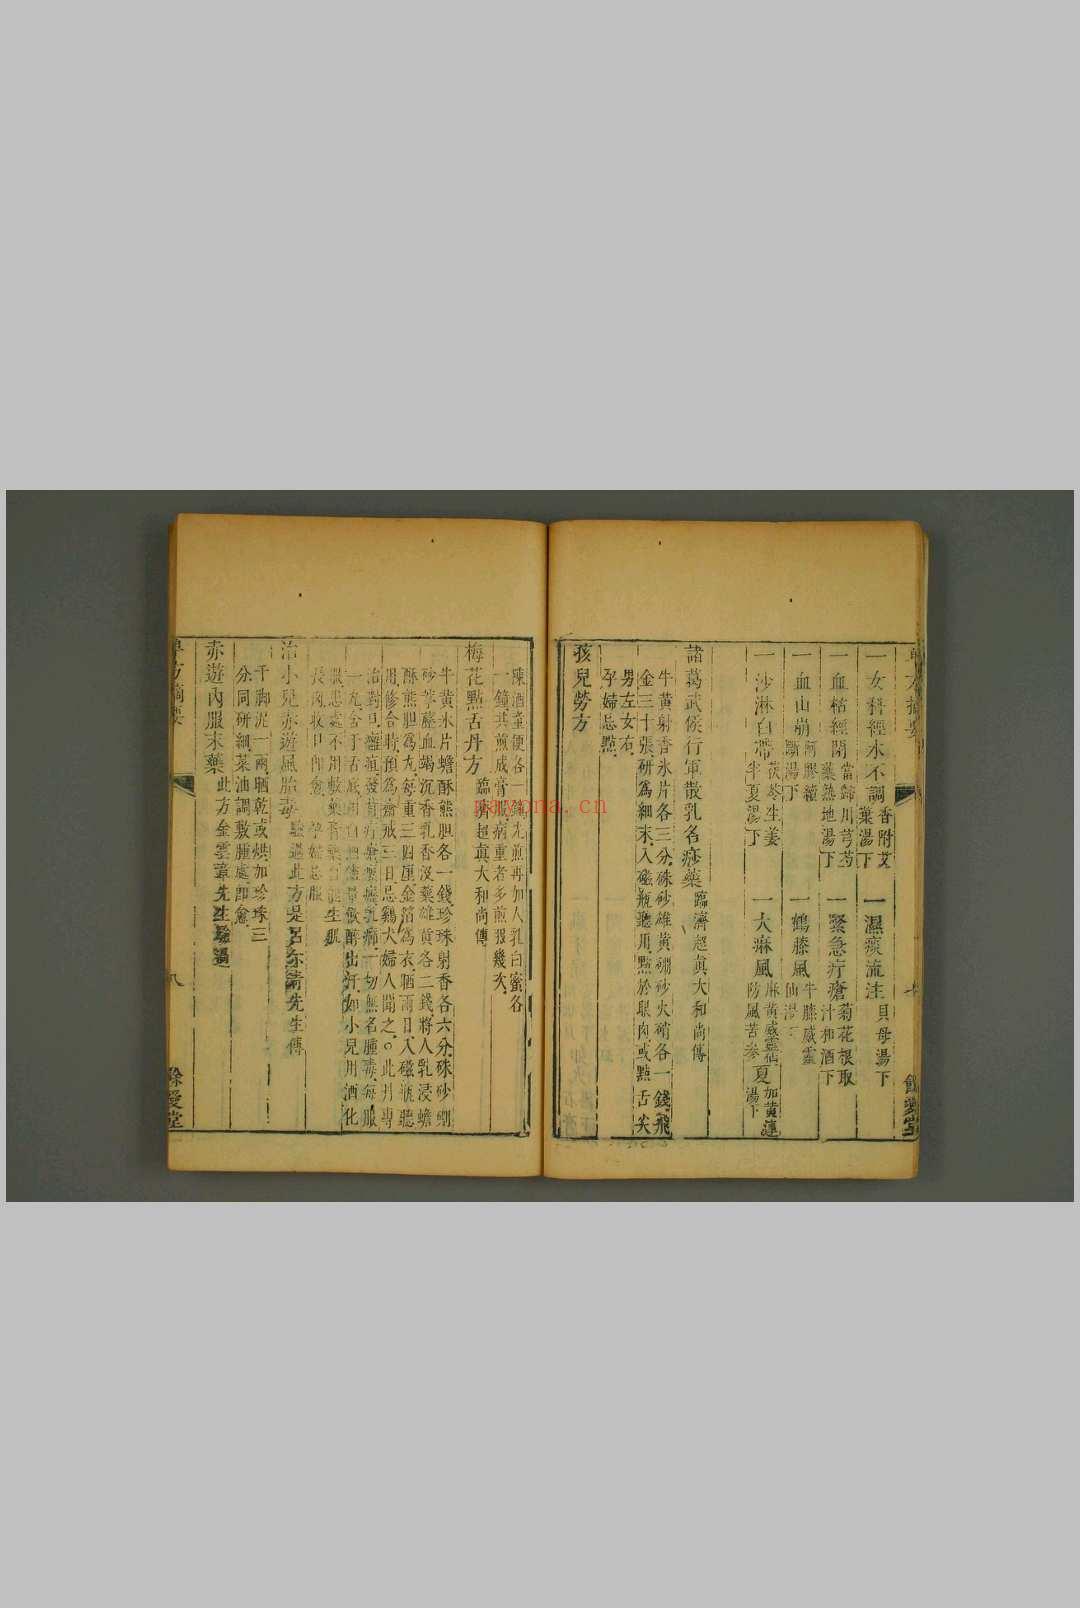 一女科經水不調 香附艾葉湯下 一濕痰流注 貝母湯下
一血枯經閉 當歸川芎芍藥熟地湯下 一緊急疔瘡 菊花根取汁和酒下
一血山崩 阿膠 湯下 一鶴膝風 牛膝威靈仙湯下
一沙淋白帶 茯苓生姜半夏湯下 一大麻風 麻黄威靈仙防風苦參 夏加黄連湯下
諸葛武侯行軍散乳名痧藥 臨濟超眞大和尚傳
牛黄射香氷片各三分硃砂雄黄硼砂火硝各一錢飛
金三十張研爲細末入磁瓶聽用點於眼肉或點舌尖
男左女右
孕婦忌點
孩兒勞方
陳酒童便各一鐘先煎再加人乳白蜜各
一鐘共煎成膏 病重者多煎服幾次
梅花點舌丹方 臨濟超眞大和尚傳
牛黄氷片蟾酥熊胆各一錢珍珠射香各六分硃砂硼
砂葶藶血竭沉香乳香没藥雄黄各二錢將人乳浸蟾
酥熊胆爲丸每重三四厘金箔爲衣晒兩日入磁瓶聽
用修合時預爲齋戒三日忌鷄犬婦人聞之○此丹專
治對口癰疽發背疔瘡 乳癤一切無名腫毒每服
一丸含于舌底用 酒 量飲醉出汗如小兒用酒化
服患處不用敷藥 生肌
長肉收口即愈 孕婦忌服
治小兒赤遊風胎毒 驗過此方是呂亦清先生傳
千脚泥一兩晒乾或烘加珍珠三
分同研細菜油調敷腫處即愈
赤遊内服末藥 此方金雲章先生驗過
八
餘慶堂
payona.cn